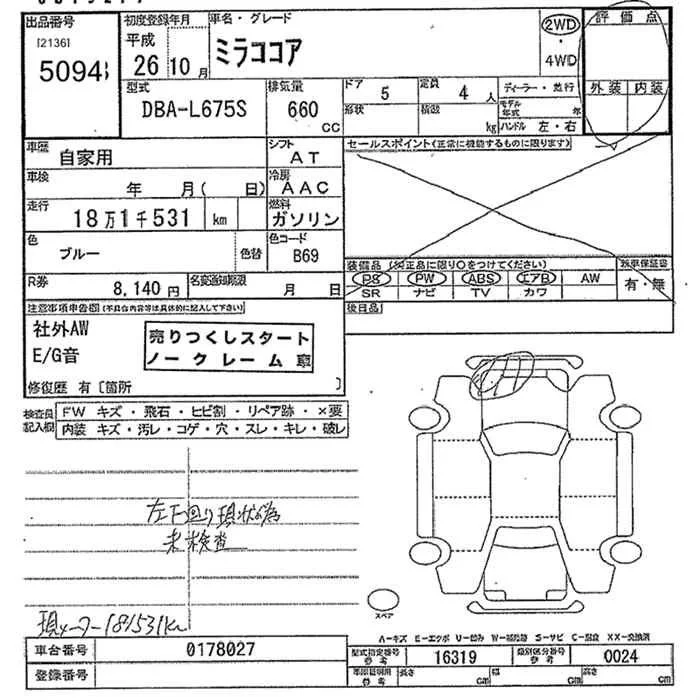 出品番号 初度登録年月 車名・グレード 2WD 評価点
[2136] 平成 ミラココア ・
5094 26 10月 4WD
型式 排気量 ドア 5 定員 4人 ディーラー・並行 外装 内装
DBA-L675S 660 CC 形状 積載 kg モデル年式 年
ハンドル 左・右
車歴 自家用 シフト AT セールスポイント(正常に機能するものに限ります)
車検 年 月( 日) 冷房 AAC
走行 18万1千531 km 燃料 ガソリン
色 ブルー 色替 色コード B69
装備品 (純正品に限り○をつけてください) 新車保証書
R券 8,140円 名変通知期限 月 日 PS PW ABS エアB AW 有・無
SR ナビ TV カワ
注意事項申告欄(不具合内容等は具体的に記入して下さい) 後日品
社外AW 売りつくしスタート
E/G音 ノークレーム車
修復歴 有〔箇所 〕
検査員 FW キズ・飛石・ヒビ割・リペア跡・×要
記入欄 内装 キズ・汚レ・コゲ・穴・スレ・キレ・破レ
左下回り現状為
未検査
現メーター181531km
スペア
A-キズ E-エクボ U-凹み W-補修跡 S-サビ C-腐食 XX-交換済
車台番号 0178027 型式指定番号 参考 16319 類別区分番号 参考 0024
登録番号 車両証明用 参考 長さ cm 幅 cm 高さ cm